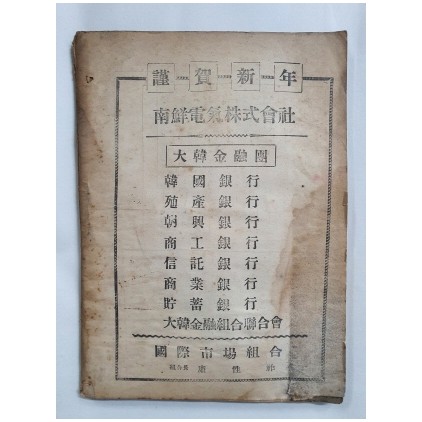 謹賀新年
南鮮電氣株式會社
大韓金融團
韓國銀行
殖產銀行
朝興銀行
商工銀行
信託銀行
商業銀行
貯蓄銀行
大韓金融組合聯合會
國際市場組合